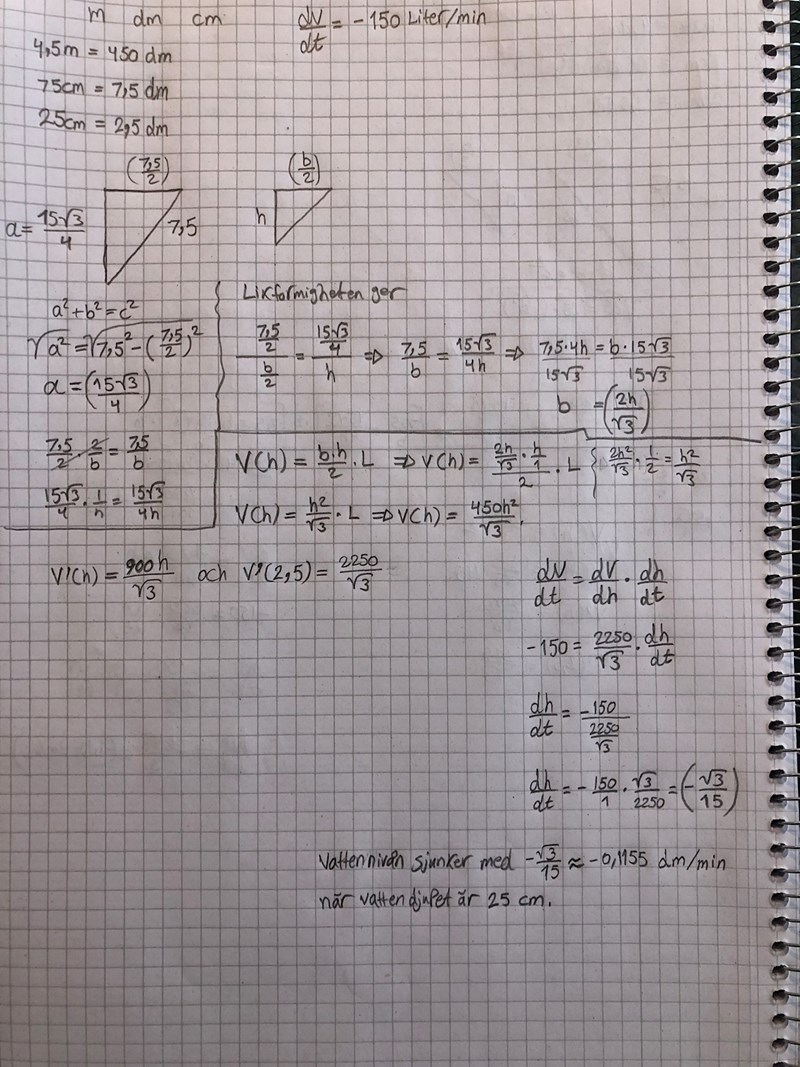 m dm cm
dV/dt = -150 Liter/min
4,5m = 450 dm
75cm = 7,5 dm
25cm = 2,5 dm
(7,5/2)
a = 15√3/4
7,5
(b/2)
h
a² + b² = c²
√a² = √7,5² - (7,5/2)²
a = (15√3/4)
7,5/2 · 2/b = 7,5/b
15√3/4 · 1/h = 15√3/4h
Likformigheten ger
(7,5/2)/(b/2) = (15√3/4)/h ⇒ 7,5/b = 15√3/4h ⇒ 7,5·4h/15√3 = b·15√3/15√3
b = (2h/√3)
V(h) = b·h/2 · L ⇒ V(h) = (2h/√3 · h/1)/2 · L { 2h²/√3 · 1/2 = h²/√3
V(h) = h²/√3 · L ⇒ V(h) = 450h²/√3.
V'(h) = 900h/√3 och V'(2,5) = 2250/√3
dV/dt = dV/dh · dh/dt
-150 = 2250/√3 · dh/dt
dh/dt = -150/(2250/√3)
dh/dt = - 150/1 · √3/2250 = (-√3/15)
Vattennivån sjunker med -√3/15 ≈ -0,1155 dm/min
när vattendjupet är 25 cm.